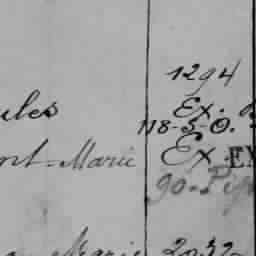 1294
ules Ex.
118-5-0.
nt-Marie Ex EX
90-
Marie 2032